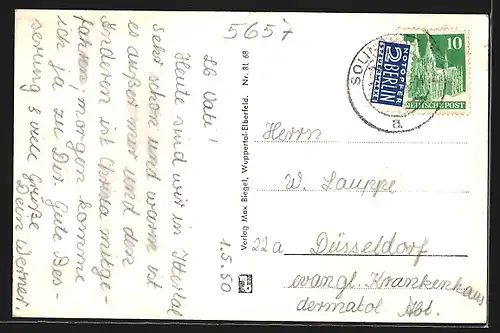 5657
Lb Vati!
Heute sind wir in Ittertal
Sehr schön und warm ist
es außer mir und den
Anderen ist Christa mitge-
fahren, morgen komme
ich ja zu Dir. Gute Bes-
serung & viele Grüße
Dein Werner.
1.5.50
Verlag Max Biegel, Wuppertal-Elberfeld. Nr. BL 68
SOLIN
a
NOTOPFER
2 BERLIN
STEUERMARKE
10
DEUTSCHE POST
Herrn
W. Lauppe
22a Düsseldorf
evangl. Krankenhaus
dermatol Abt.